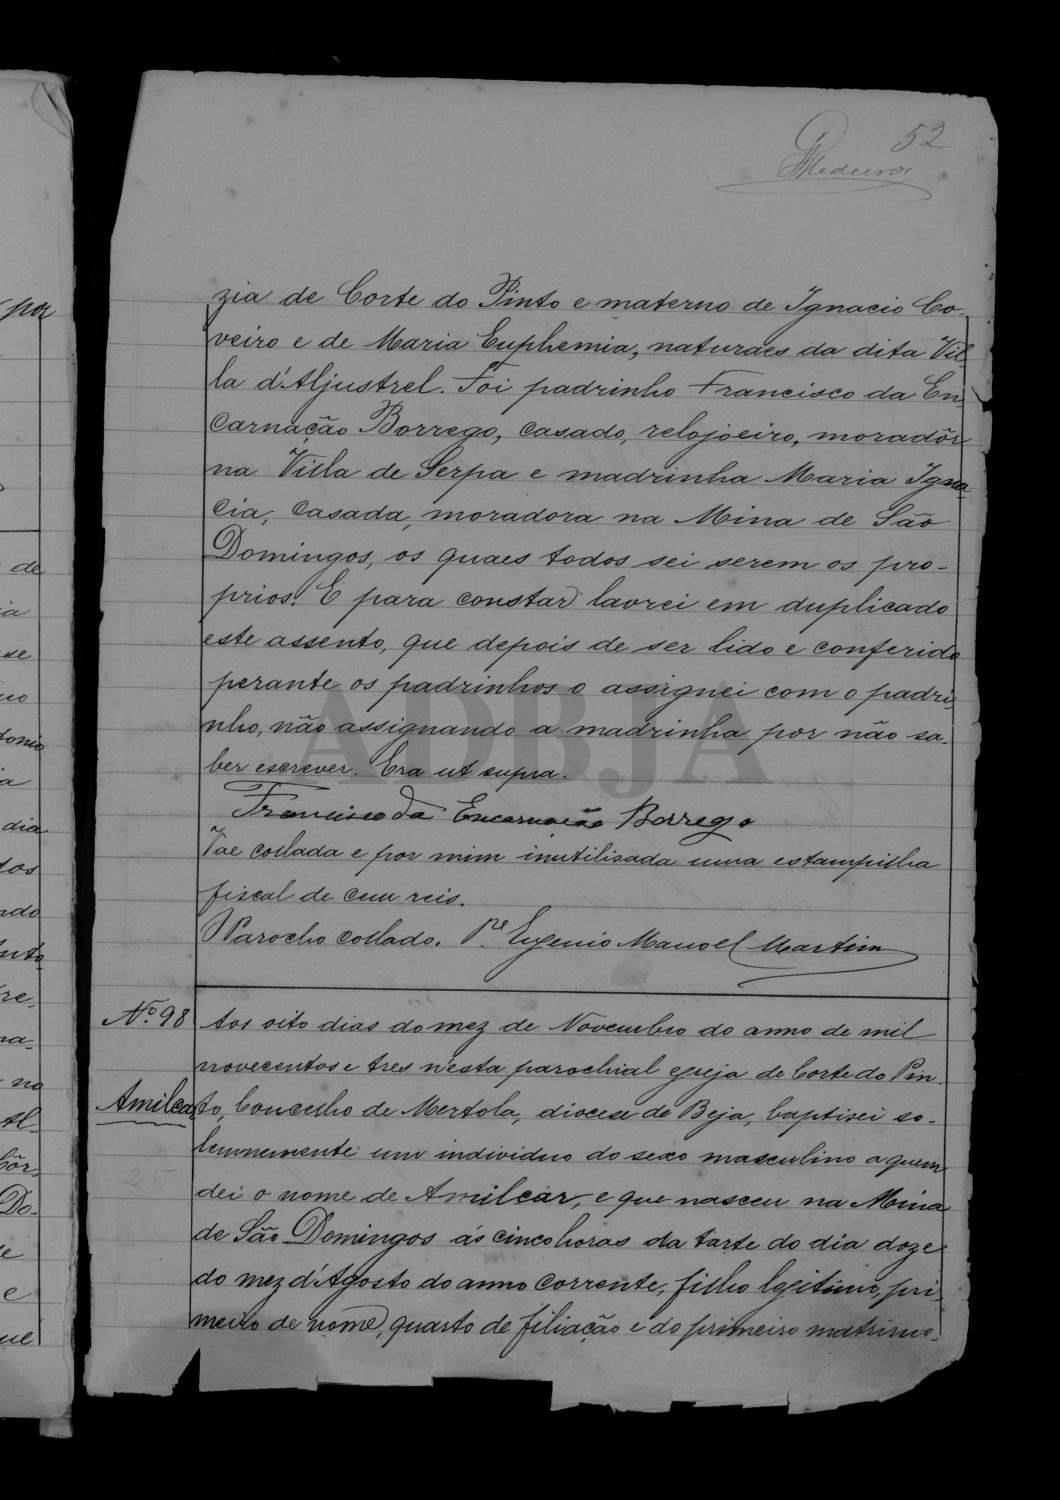 52
Medeiros
zia de Corte do Pinto e materno de Ignacio Co-
veiro e de Maria Euphemia, naturaes da dita Vil-
la d'Aljustrel. Foi padrinho Francisco da En-
carnação Borrego, casado, relojoeiro, moradôr
na Villa de Serpa e madrinha Maria Igna-
cia, casada, moradora na Mina de São
Domingos, os quaes todos sei serem os pro-
prios. E para constar lavrei em duplicado
este assento, que depois de ser lido e conferido
perante os padrinhos o assignei com o padri-
nho, não assignando a madrinha por não sa-
ber escrever. Era ut supra.
Francisco da Encarnação Borrego
Vae collada e por mim inutilisada uma estampilha
fiscal de cem reis.
O Parocho collado. P.e Eugenio Manoel Martins
N.º 98 Aos oito dias do mez de Novembro do anno de mil
novecentos e tres n'esta parochial egreja de Corte do Pin-
Amilcar to, Concelho de Mertola, diocese de Beja, baptisei so-
lemnemente um individuo do sexo masculino a quem
dei o nome de Amilcár, e que nasceu na Mina
de São Domingos ás cinco horas da tarte do dia doze
do mez d'Agosto do anno corrente, filho legitimo, pri-
meiro de nome, quarto de filiação e do primeiro matrimo-
por
de
ia
se
tonio
a
dia
tos
ndo
nto
re-
na-
no
Al-
Côr-
Do-
e
e
ue
ADBJA